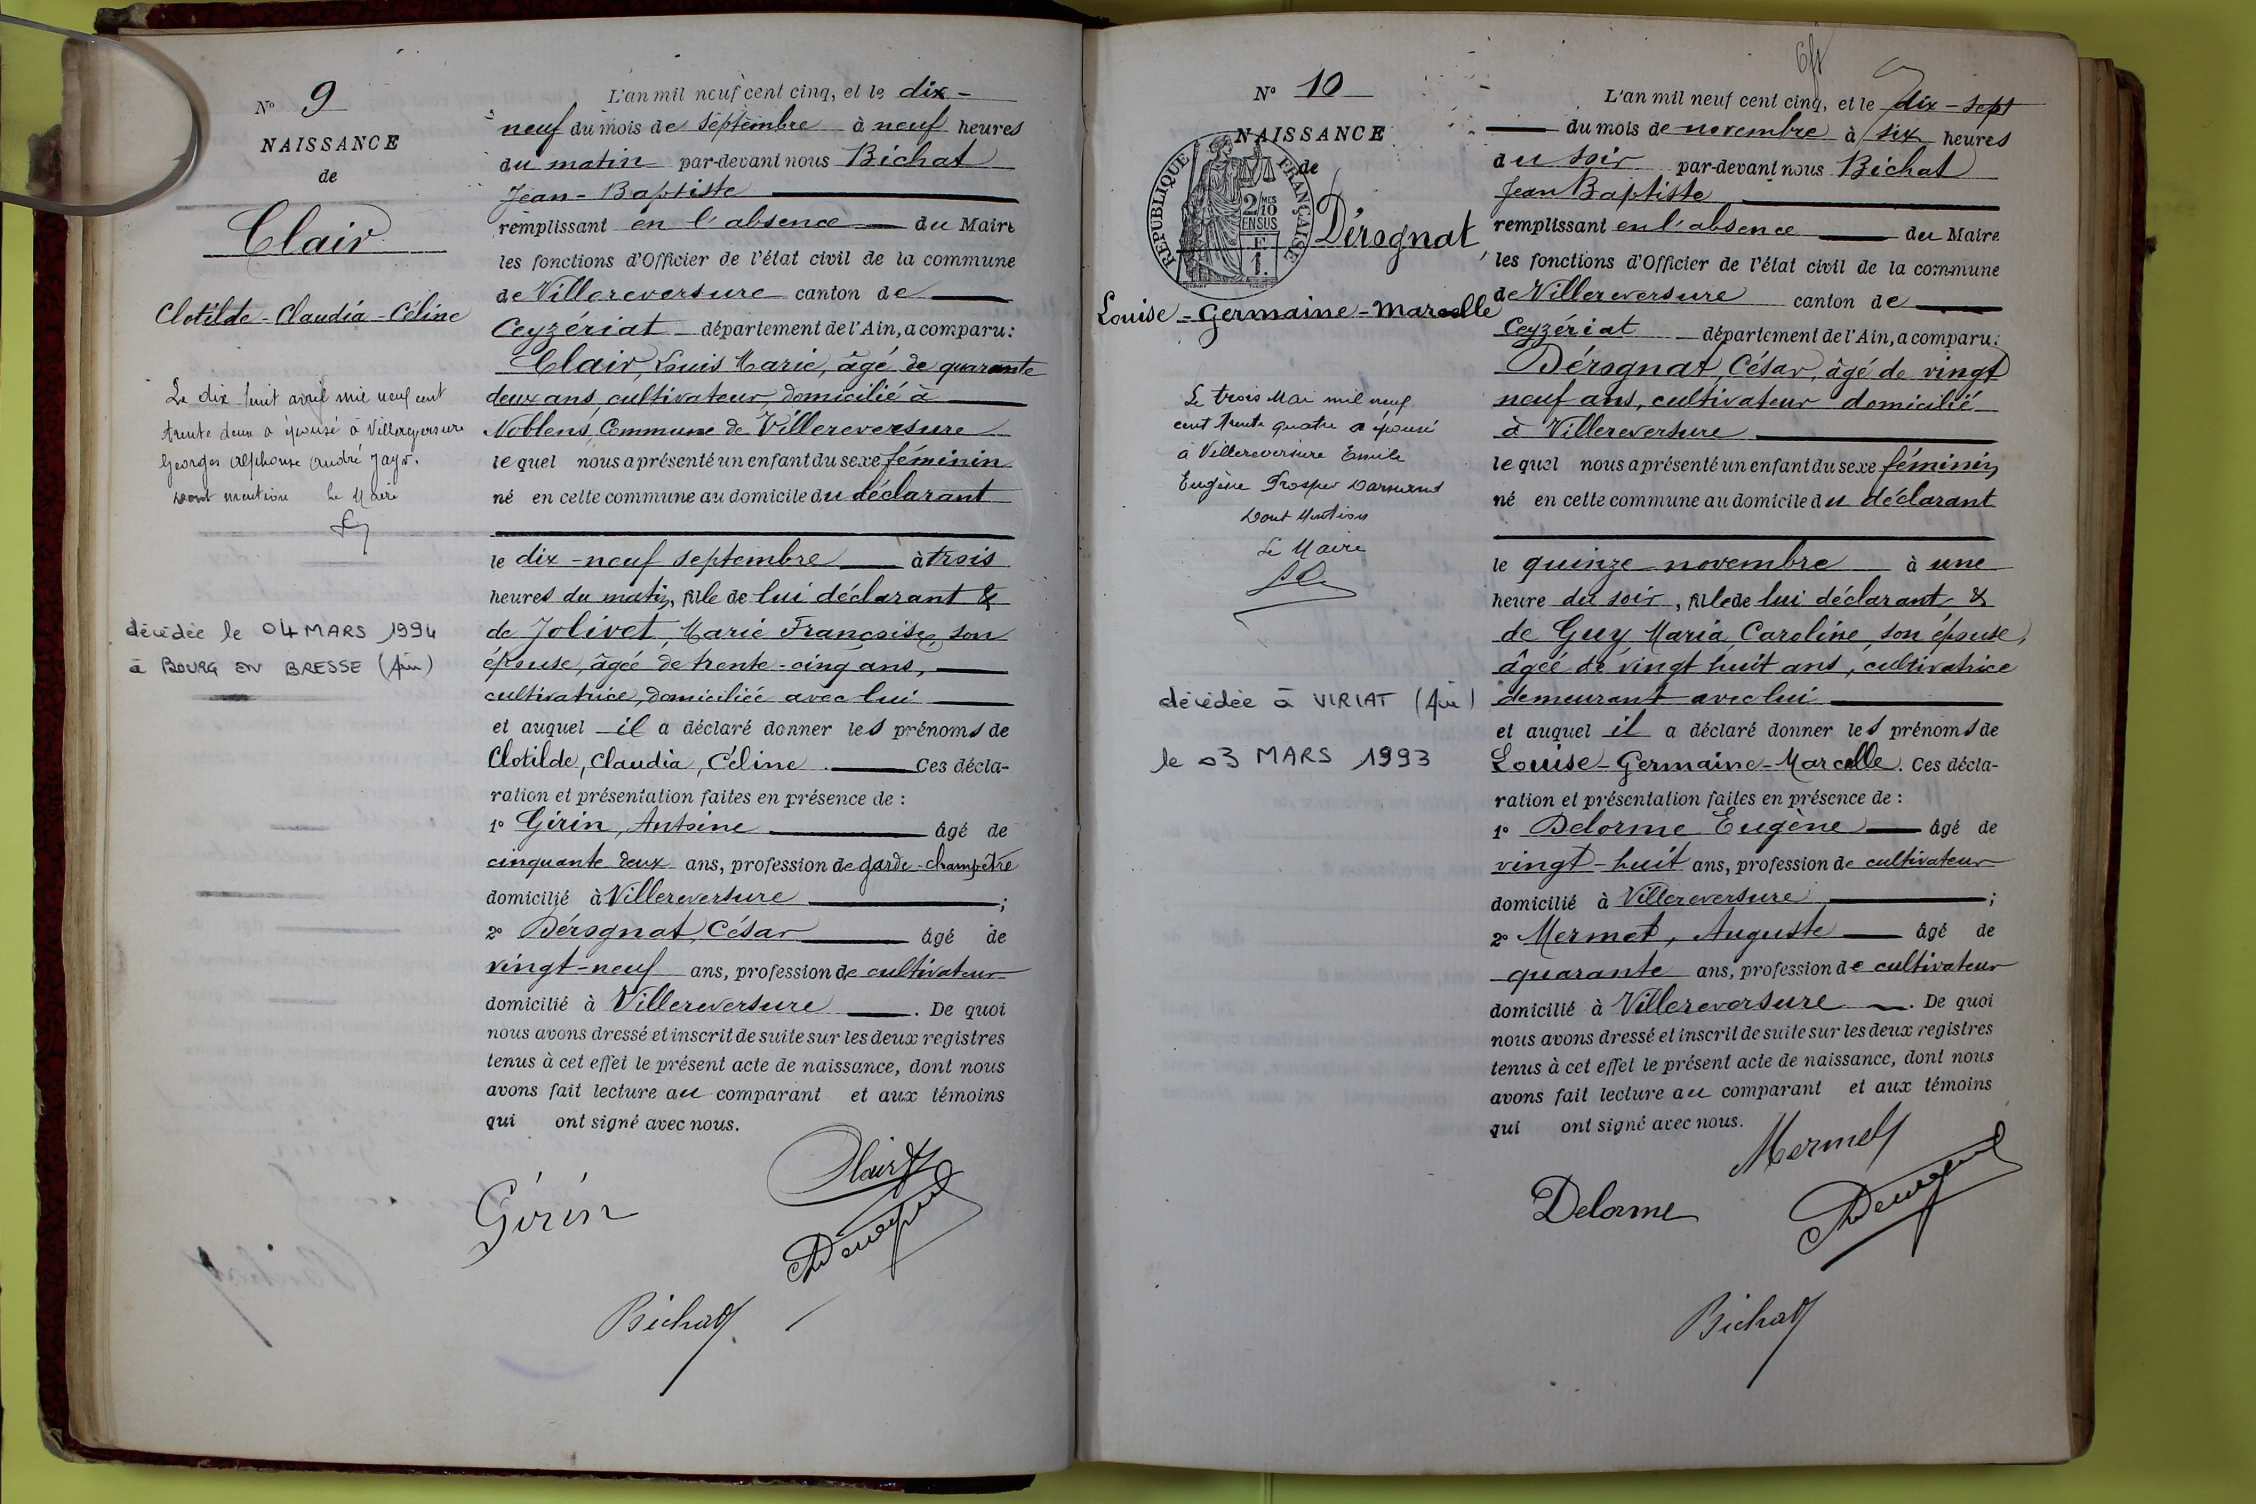 N° 9
NAISSANCE
de
Clair
Clotilde - Claudia - Céline
Le dix huit avril mil neuf cent
trente deux a épousé à Villereversure
Georges Alphonse André Jayr.
Dont mention Le Maire
décédée le 04 MARS 1994
à BOURG EN BRESSE (Ain)
L'an mil neuf cent cinq, et le dix-
neuf du mois de septembre à neuf heures
du matin par-devant nous Bichat
Jean-Baptiste
remplissant en l'absence du Maire
les fonctions d'Officier de l'état civil de la commune
de Villereversure canton de
Ceyzériat département de l'Ain, a comparu:
Clair, Louis Marie, âgé de quarante
deux ans, cultivateur, domicilié à
Noblens, Commune de Villereversure
lequel nous a présenté un enfant du sexe féminin
né en cette commune au domicile du déclarant
le dix-neuf septembre à trois
heures du matin, fille de lui déclarant &
de Jolivet, Marie Françoise, son
épouse, âgée de trente-cinq ans,
cultivatrice, domiciliée avec lui
et auquel il a déclaré donner les prénoms de
Clotilde, Claudia, Céline. Ces décla-
ration et présentation faites en présence de :
1° Girin, Antoine âgé de
cinquante deux ans, profession de garde-champêtre
domicilié à Villereversure ;
2° Dérognat, César âgé de
vingt-neuf ans, profession de cultivateur
domicilié à Villereversure. De quoi
nous avons dressé et inscrit de suite sur les deux registres
tenus à cet effet le présent acte de naissance, dont nous
avons fait lecture au comparant et aux témoins
qui ont signé avec nous.
Clair
Girin
Bichat
N° 10
NAISSANCE
de
REPUBLIQUE FRANÇAISE
2/10 MES
EN SUS
1 F.
Dérognat,
Louise - Germaine - Marcelle
Le trois Mai mil neuf
cent trente quatre a épousé
à Villereversure Emile
Eugène Prosper
Dont Mention
Le Maire
décédée à VIRIAT (Ain)
le 03 MARS 1993
L'an mil neuf cent cinq, et le dix-sept
du mois de novembre à six heures
du soir par-devant nous Bichat
Jean Baptiste
remplissant en l'absence du Maire
les fonctions d'Officier de l'état civil de la commune
de Villereversure canton de
Ceyzériat département de l'Ain, a comparu:
Dérognat, César, âgé de vingt
neuf ans, cultivateur domicilié
à Villereversure
lequel nous a présenté un enfant du sexe féminin
né en cette commune au domicile du déclarant
le quinze novembre à une
heure du soir, fille de lui déclarant &
de Guy Maria Caroline, son épouse,
âgée de vingt huit ans, cultivatrice
demeurant avec lui
et auquel il a déclaré donner les prénoms de
Louise-Germaine-Marcelle. Ces décla-
ration et présentation faites en présence de :
1° Delorme Eugène âgé de
vingt-huit ans, profession de cultivateur
domicilié à Villereversure ;
2° Mermet, Auguste âgé de
quarante ans, profession de cultivateur
domicilié à Villereversure. De quoi
nous avons dressé et inscrit de suite sur les deux registres
tenus à cet effet le présent acte de naissance, dont nous
avons fait lecture au comparant et aux témoins
qui ont signé avec nous.
Mermet
Delorme
Bichat